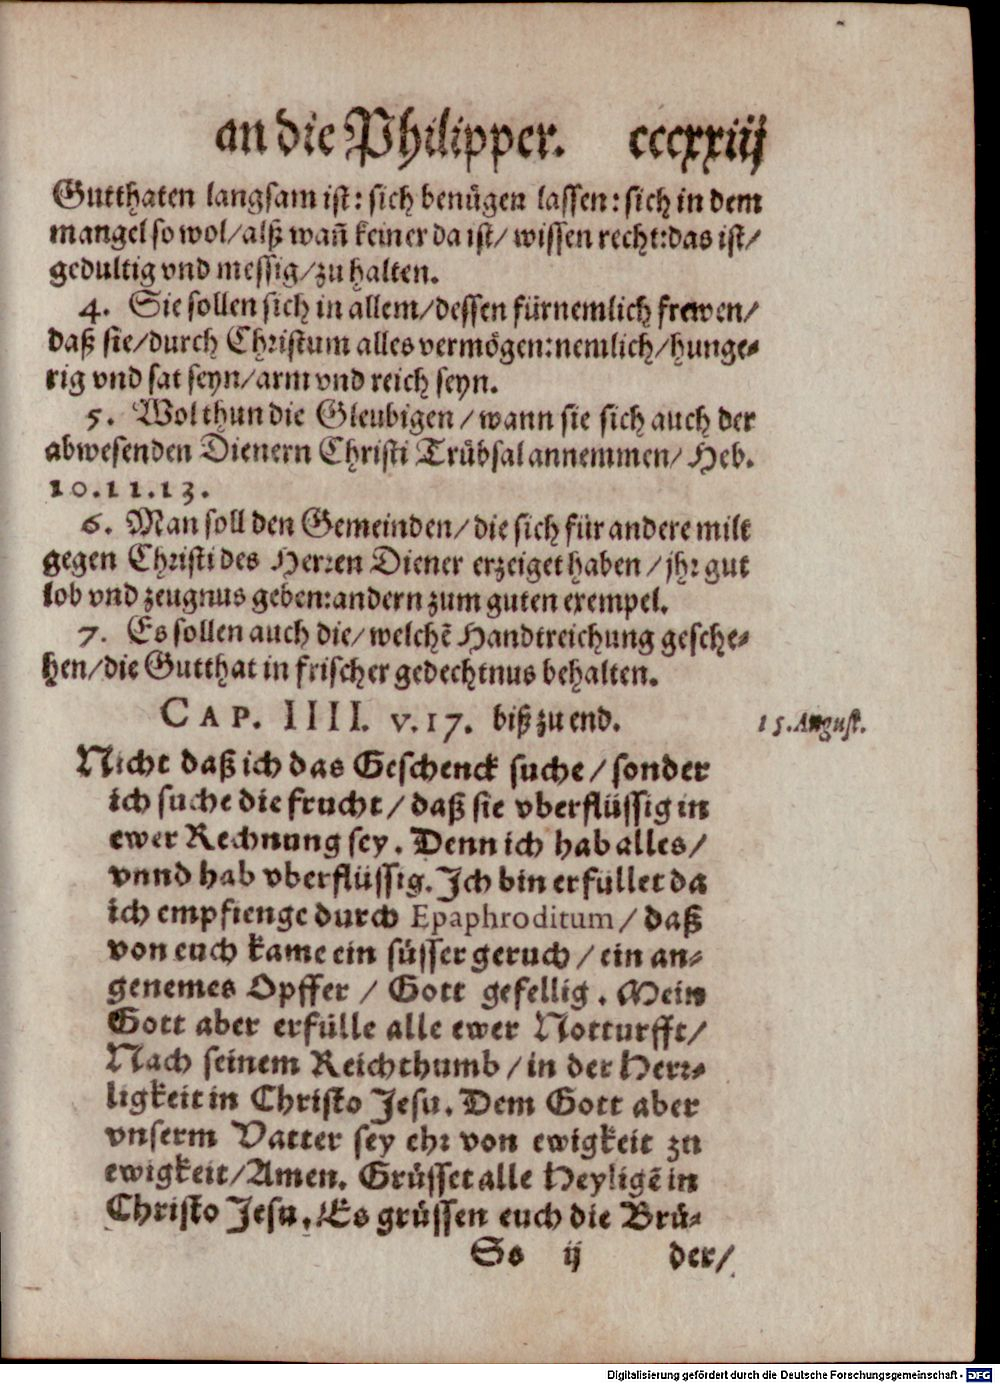 an die Philipper. cccxxiij
Gutthaten langsam ist: sich benügen lassen: sich in dem
mangel so wol/ alß wañ keiner da ist/ wissen recht: das ist/
gedultig vnd messig/ zu halten.
4. Sie sollen sich in allem/ dessen fürnemlich frewen/
daß sie/ durch Christum alles vermögen: nemlich/ hunge-
rig vnd sat seyn/ arm vnd reich seyn.
5. Wol thun die Gleubigen/ wann sie sich auch der
abwesenden Dienern Christi Trübsal annemmen/ Heb.
10.11.13.
6. Man soll den Gemeinden/ die sich für andere milt
gegen Christi des Herren Diener erzeiget haben/ jhr gut
lob vnd zeugnus geben: andern zum guten exempel.
7. Es sollen auch die/ welchē Handtreichung gesche-
hen/ die Gutthat in frischer gedechtnus behalten.
CAP. IIII. v.17. biß zu end.
15. August.
Nicht daß ich das Geschenck suche/ sonder
ich suche die frucht/ daß sie vberflüssig in
ewer Rechnung sey. Denn ich hab alles/
vnnd hab vberflüssig. Ich bin erfüllet da
ich empfienge durch Epaphroditum/ daß
von euch kame ein süsser geruch/ ein an-
genemes Opffer/ Gott gefellig. Mein
Gott aber erfülle alle ewer Notturfft/
Nach seinem Reichthumb/ in der Herr-
ligkeit in Christo Jesu. Dem Gott aber
vnserm Vatter sey ehr von ewigkeit zu
ewigkeit/ Amen. Grüsset alle Heyligē in
Christo Jesu. Es grüssen euch die Brü-
Ss ij der/
Digitalisierung gefördert durch die Deutsche Forschungsgemeinschaft - DFG